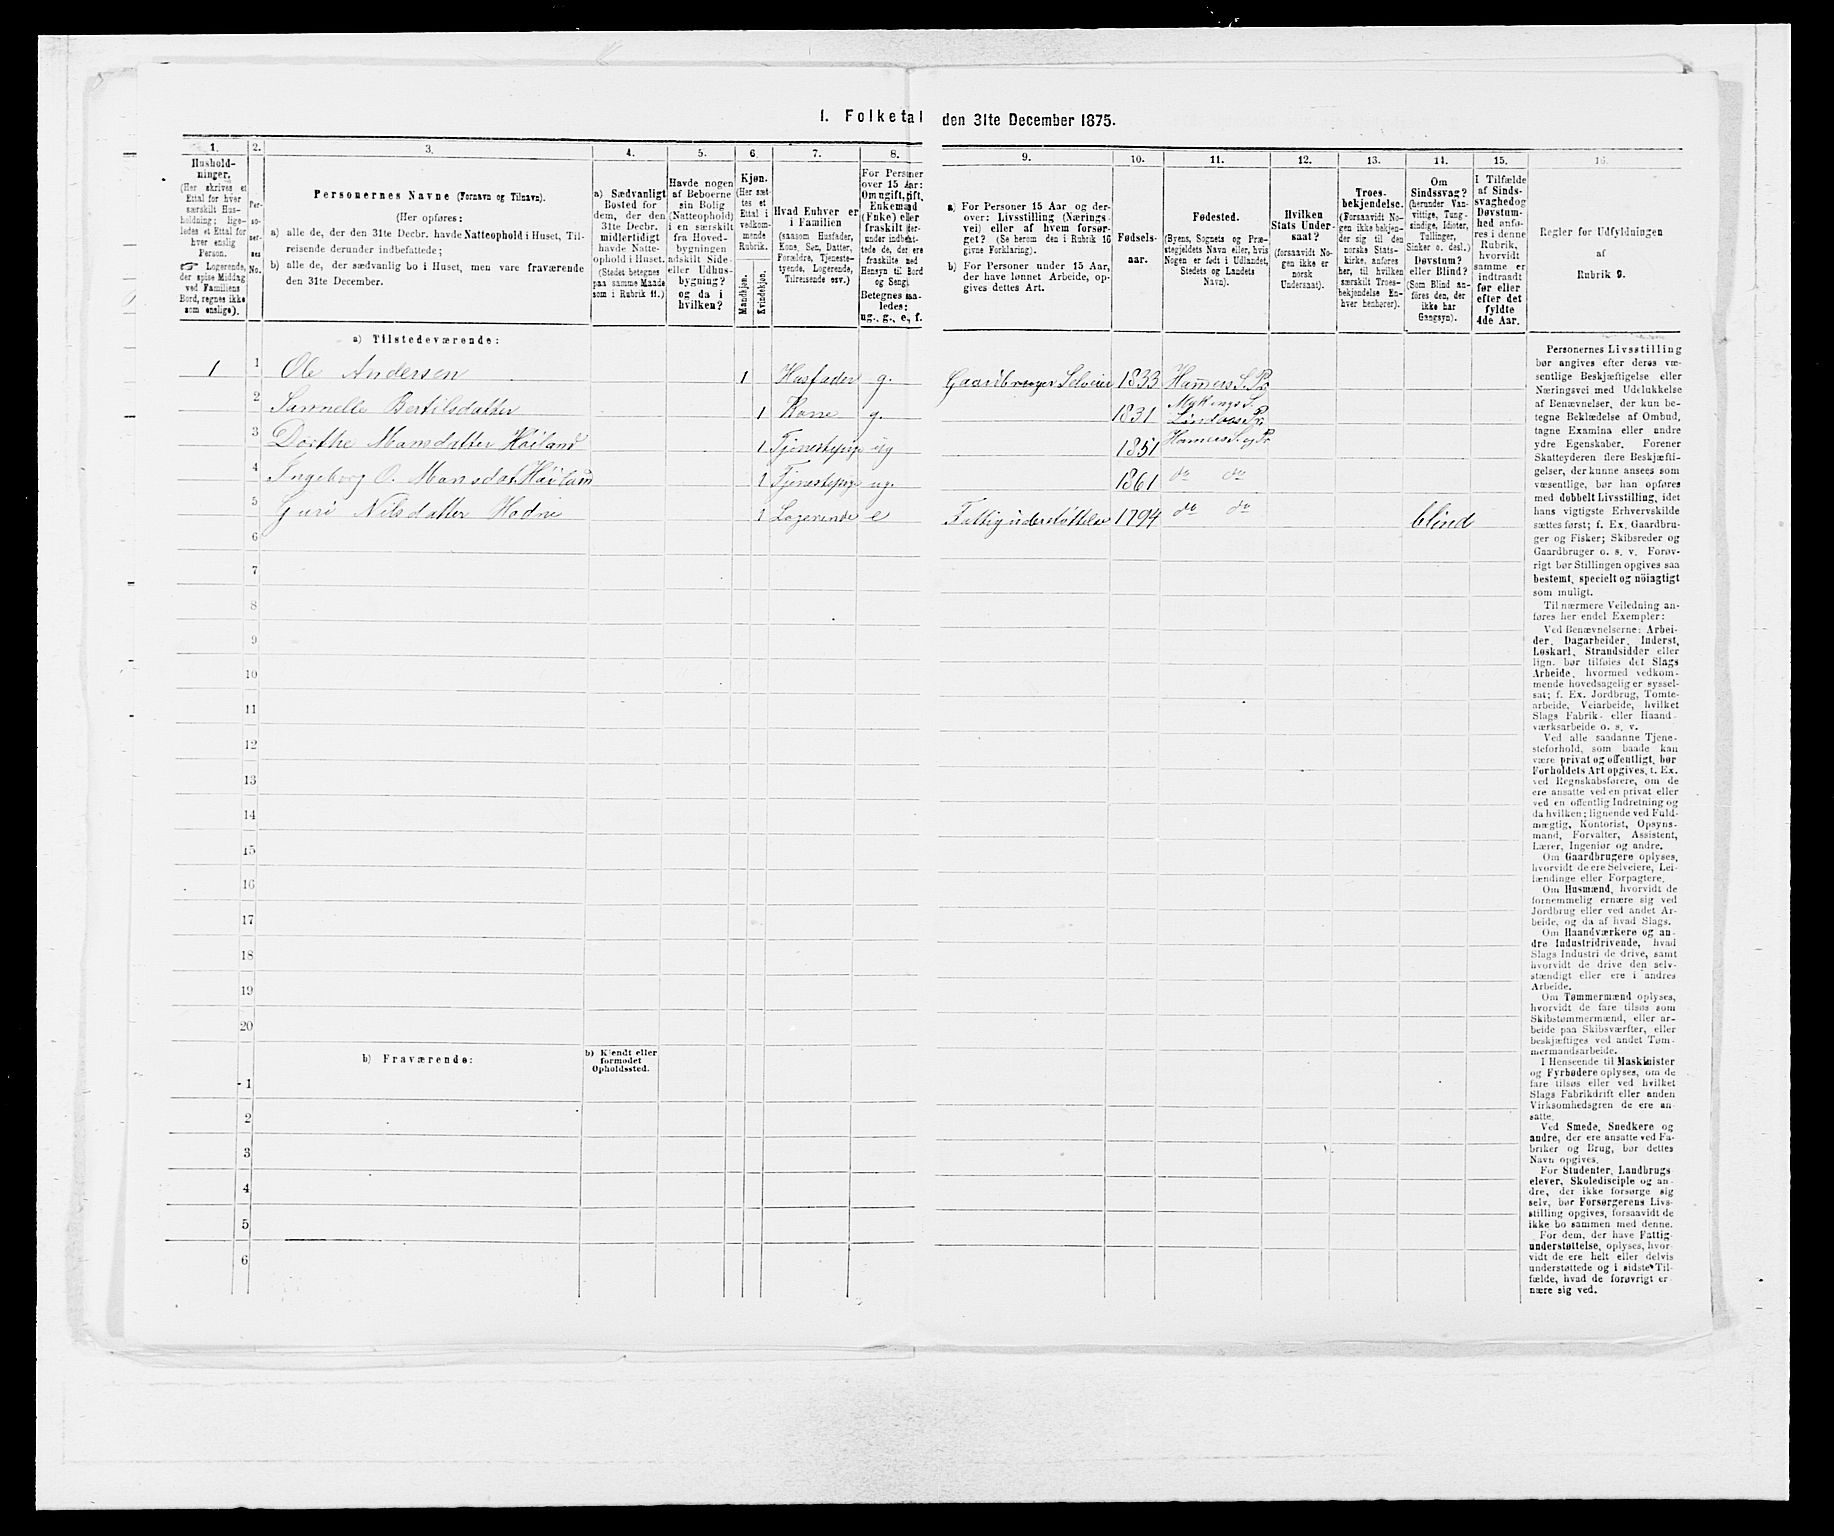 1. Folketal den 31te December 1875.
1.
2.
3.
4.
5.
6.
7.
8.
9.
10.
11.
12.
13.
14.
15.
16.
Hushold-
ninger.
(Her skrives et
Ettal for hver
særskilt Hus-
holdning; lige-
ledes et Ettal for
hver enslig
Person.
☞ Logerende,
der spise Middag
ved Familiens
Bord, regnes ikke
som enslige).
Per-
so-
ner-
nes
No.
Personernes Navne (Fornavn og Tilnavn).
(Her opføres:
a) alle de, der den 31te Decbr. havde Natteophold i Huset, Til-
reisende derunder indbefattede;
b) alle de, der sædvanlig bo i Huset, men vare fraværende
den 31te December.
a) Sædvanligt
Bosted for
dem, der den
31te Decbr.
midlertidigt
havde Natte-
ophold i Huset.
(Stedet betegnes
paa samme Maade
som i Rubrik 11.)
Havde nogen
af Beboerne
sin Bolig
(Natteophold)
i en særskilt
fra Hoved-
bygningen
adskilt Side-
eller Udhus-
bygning?
og da i
hvilken?
Kjøn.
(Her sæt-
tes et
Ettal i
vedkom-
mende
Rubrik.
Mandkjøn.
Kvindekjøn.
Hvad Enhver er
i Familien
(saasom Husfader,
Kone, Søn, Datter,
Forældre, Tjeneste-
tyende, Logerende,
Tilreisende osv.)
For Personer
over 15 Aar:
Om ugift, gift,
Enkemand
(Enke) eller
fraskilt der-
under indbefat-
tede de, der ere
fraskilte ved
Hensyn til Bord
og Seng).
Betegnes saa-
ledes:
ug., g., e., f.
a) For Personer 15 Aar og der-
over: Livsstilling (Nærings-
vei) eller af hvem forsør-
get? (Se herom den i Rubrik 16
givne Forklaring).
b) For Personer under 15 Aar,
der have lønnet Arbeide, op-
gives dettes Art.
Fødsels-
aar.
Fødested.
(Byens, Sognets og Præ-
stegjeldets Navn eller, hvis
Nogen er født i Udlandet,
Stedets og Landets
Navn).
Hvilken
Stats Under-
saat?
(forsaavidt No-
gen ikke er
norsk
Undersaat).
Troes-
bekjendelse.
(Forsaavidt No-
gen ikke bekjen-
der sig til den
norske Stats-
kirke, anføres
her, til hvilken
særskilt Troes-
bekjendelse En-
hver henhører).
Om
Sindssvag?
(herunder Van-
vittige, Tung-
sindige, Idioter,
Tullinger,
Sinker o. desl.)
Døvstum?
eller Blind?
(Som Blind an-
føres den, der
ikke har
Gangsyn).
I Tilfælde
af Sinds-
svaghed og
Døvstum-
hed anfø-
res i denne
Rubrik,
hvorvidt
samme er
indtraadt
før eller
efter det
fyldte
4de Aar.
Regler for Udfyldningen
af
Rubrik 9.
a) Tilstedeværende:
1 1 Ole Andersen 1 Husfader g. Gaardbruger Selveier 1833 Hammers S. Pr
2 Bertilsdatter 1 Kone g. 1831 Myckings S. Lindaas Pr
3 Dorthe Mansdatter Høiland 1 Tjenestepige ug 1851 Hammers S. og Pr
4 Ingeborg O. Mansdat. Høiland 1 Tjenestepige ug. 1861 do do
5 Guri Nilsdatter Hodne 1 Logerende e Fattigunderstøttelse 1794 do do blind
6
7
8
9
10
11
12
13
14
15
16
17
18
19
20
b) Fraværende:
b) Kjendt eller
formodet
Opholdssted.
1
2
3
4
5
6
Personernes Livsstilling
bør angives efter deres væ-
sentlige Beskjæftigelse eller
Næringsvei med Udelukkelse
af Benævnelser, der kun be-
tegne Beklædelse af Ombud,
tagne Examina eller andre
ydre Egenskaber. Forener
Skatteyderen flere Beskjæfti-
gelser, der kunne ansees som
væsentlige, bør han opføres
med dobbelt Livsstilling, idet
hans vigtigste Erhvervskilde
sættes først; f. Ex. Gaardbru-
ger og Fisker; Skibsreder og
Gaardbruger o. s. v. Forøv-
rigt bør Stillingen opgives saa
bestemt, specielt og nöiagtigt
som muligt.
Til nærmere Veiledning an-
føres her endel Exempler:
Ved Benævnelserne: Arbei-
der, Dagarbeider, Inderst,
Løskarl, Strandsidder eller
lign. bør tilføies det Slags
Arbeide, hvormed vedkom-
mende hovedsagelig er syssel-
sat; f. Ex. Jordbrug, Tomte-
arbeide, Veiarbeide, hvilket
Slags Fabrik- eller Haand-
værksarbeide o. s. v.
Ved alle saadanne Tjene-
steforhold, som baade kan
være privat og offentligt, bør
Forholdets Art opgives, t. Ex.
ved Regnskabsførere, om de
ere ansatte ved en privat eller
ved en offentlig Indretning og
da hvilken; lignende ved Fuld-
mægtig, Kontorist, Opsyns-
mand, Forvalter, Assistent,
Lærer, Ingeniør og andre.
Om Gaardbrugere oplyses,
hvorvidt de ere Selveiere, Lei-
lændinge eller Forpagtere.
Om Husmænd, hvorvidt de
fornemmelig ernære sig ved
Jordbrug eller ved andet Ar-
beide, og da af hvad Slags.
Om Haandværkere og an-
dre Industridrivende, hvad
Slags Industri de drive, samt
hvorvidt de drive den selv-
stændigt eller ere i andres
Arbeide.
Om Tømmermænd oplyses,
hvorvidt de fare tilsøs som
Skibstømmermænd, eller ar-
beide paa Skibsværfter, eller
beskjæftiges ved andet Tøm-
mermandsarbeide.
I Henseende til Maskinister
og Fyrbødere oplyses, om de
fare tilsøs eller ved hvilket
Slags Fabrikdrift eller anden
Virksomhedsgren de ere an-
satte.
Ved Smede, Snedkere og
andre, der ere ansatte ved Fa-
briker og Brug, bør dettes
Navn opgives.
For Studenter, Landbrugs-
elever, Skoledisciple og an-
dre, der ikke forsørge sig
selv, bør Forsørgerens Livs-
stilling opgives, forsaavidt de
ikke bo sammen med denne.
For dem, der have Fattig-
understøttelse, oplyses, hvor-
vidt de ere helt eller delvis
understøttede og i sidste Til-
fælde, hvad de forøvrigt er-
nære sig ved.